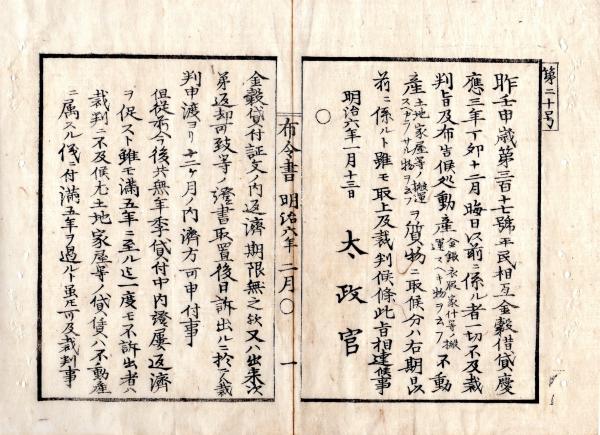 第二十号
昨壬申歳第三百十七號平民相互金穀借貸慶
應三年丁卯十二月晦日以前ニ係ル者一切不及裁
判旨及布告候処動産金銀衣服家什等ノ搬運スヘキ物ヲ云フ不動
産土地家屋等ノ搬運スヘカラサル物ヲ云フヲ質物ニ取候分ハ右期限
前ニ係ルト雖モ取上及裁判候條此旨相達候事
明治六年一月十三日 太政官
〇
布令書 明治六年 二月〇 一
金穀貸付証文ノ内返済期限無之欤又ハ出来次
第返却可致等ノ證書取置後日訴出ルニ於テハ裁
判申渡ヨリ十二ヶ月ノ内済方可申付事
但従前今後共無年季貸付中内證屡返済
ヲ促スト雖モ満五年ニ至ル迄一度モ不訴出者ハ
裁判ニ不及候尤土地家屋等ノ貸賃ハ不動産
ニ属スル儀ニ付満五年ヲ過ルト雖モ可及裁判事